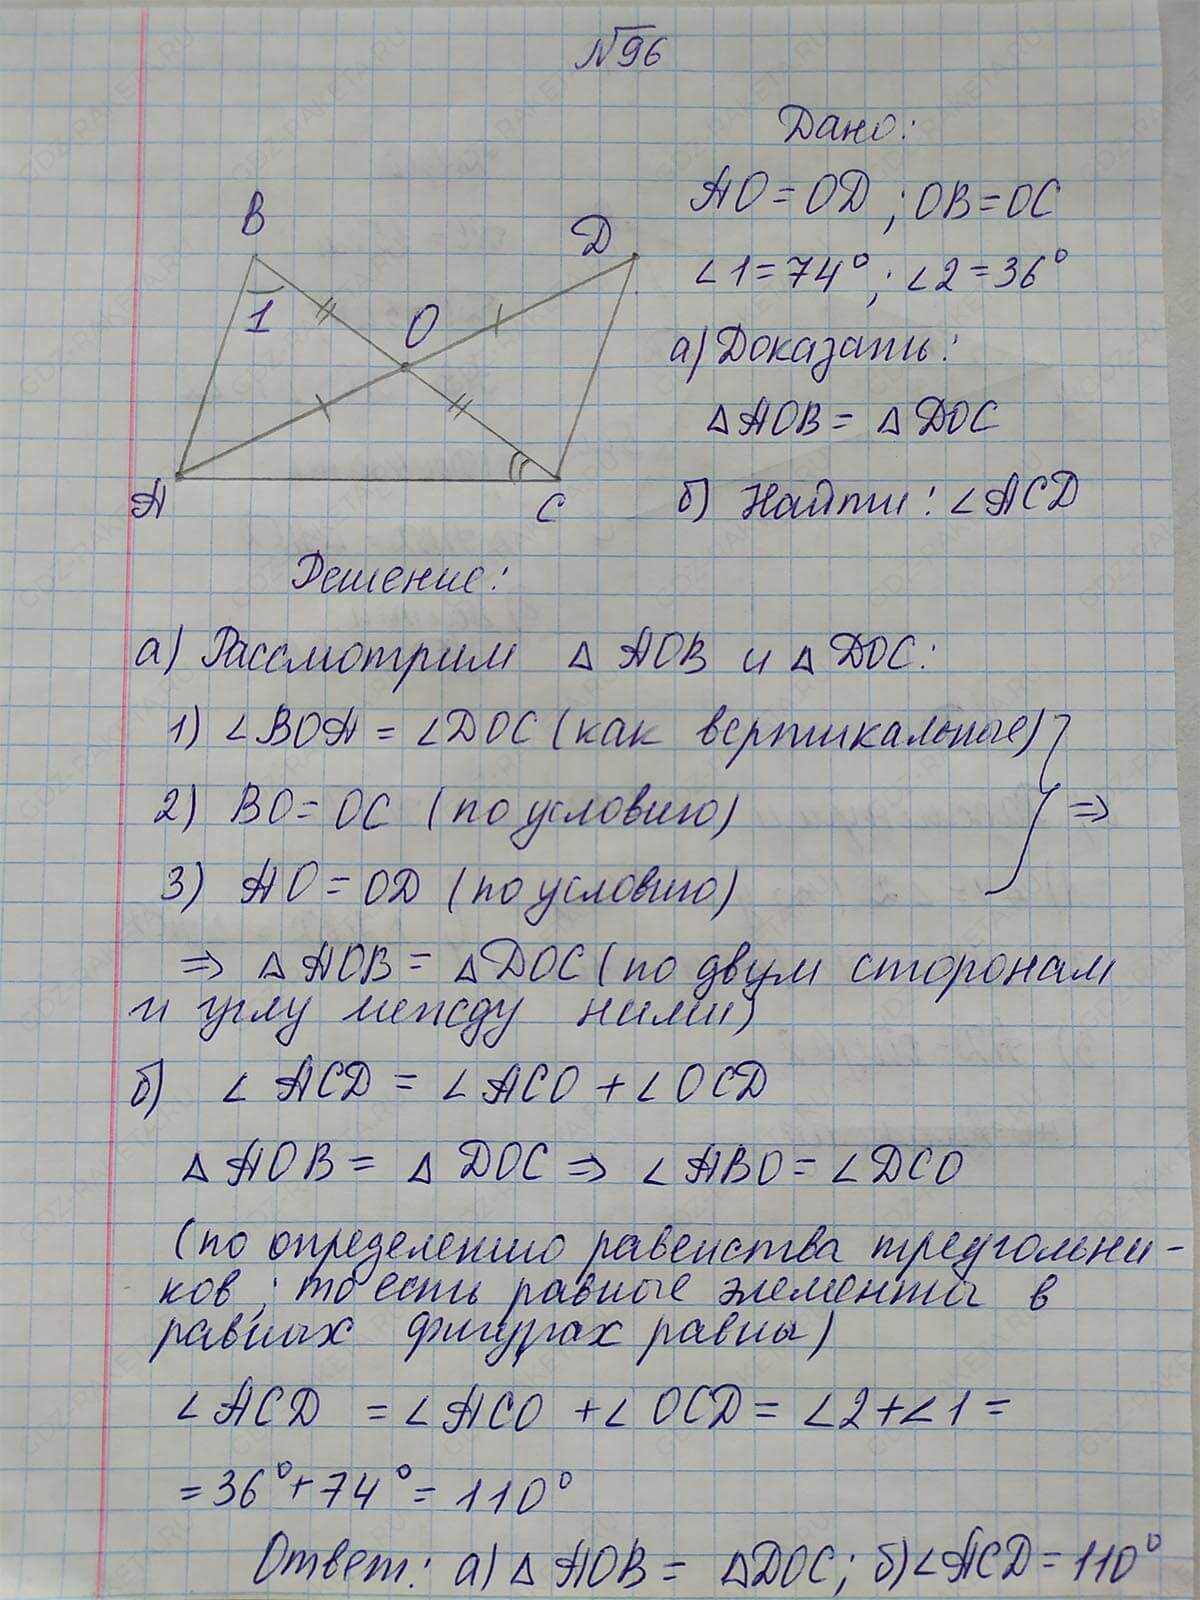 №96
Дано:
AO = OD ; OB = OC
∠1 = 74° ; ∠2 = 36°
а) Доказать:
△AOB = △DOC
б) Найти: ∠ACD
B
D
1
O
A
C
Решение:
а) Рассмотрим △AOB и △DOC:
1) ∠BOA = ∠DOC (как вертикальные)
2) BO = OC (по условию)
⇒
3) AO = OD (по условию)
⇒ △AOB = △DOC (по двум сторонам
и углу между ними)
б) ∠ACD = ∠ACO + ∠OCD
△AOB = △DOC ⇒ ∠ABO = ∠DCO
(по определению равенства треугольни-
ков; то есть равные элементы в
равных фигурах равны)
∠ACD = ∠ACO + ∠OCD = ∠2 + ∠1 =
= 36° + 74° = 110°
Ответ: а) △AOB = △DOC; б) ∠ACD = 110°